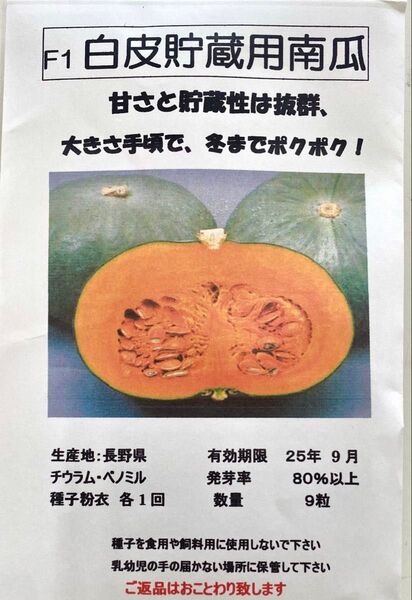 F1 白皮貯蔵用南瓜
甘さと貯蔵性は抜群、
大きさ手頃で、冬までポクポク！
生産地:長野県 有効期限 25年 9月
チウラム・ベノミル 発芽率 80%以上
種子粉衣 各1回 数量 9粒
種子を食用や飼料用に使用しないで下さい
乳幼児の手の届かない場所に保管して下さい
ご返品はおことわり致します